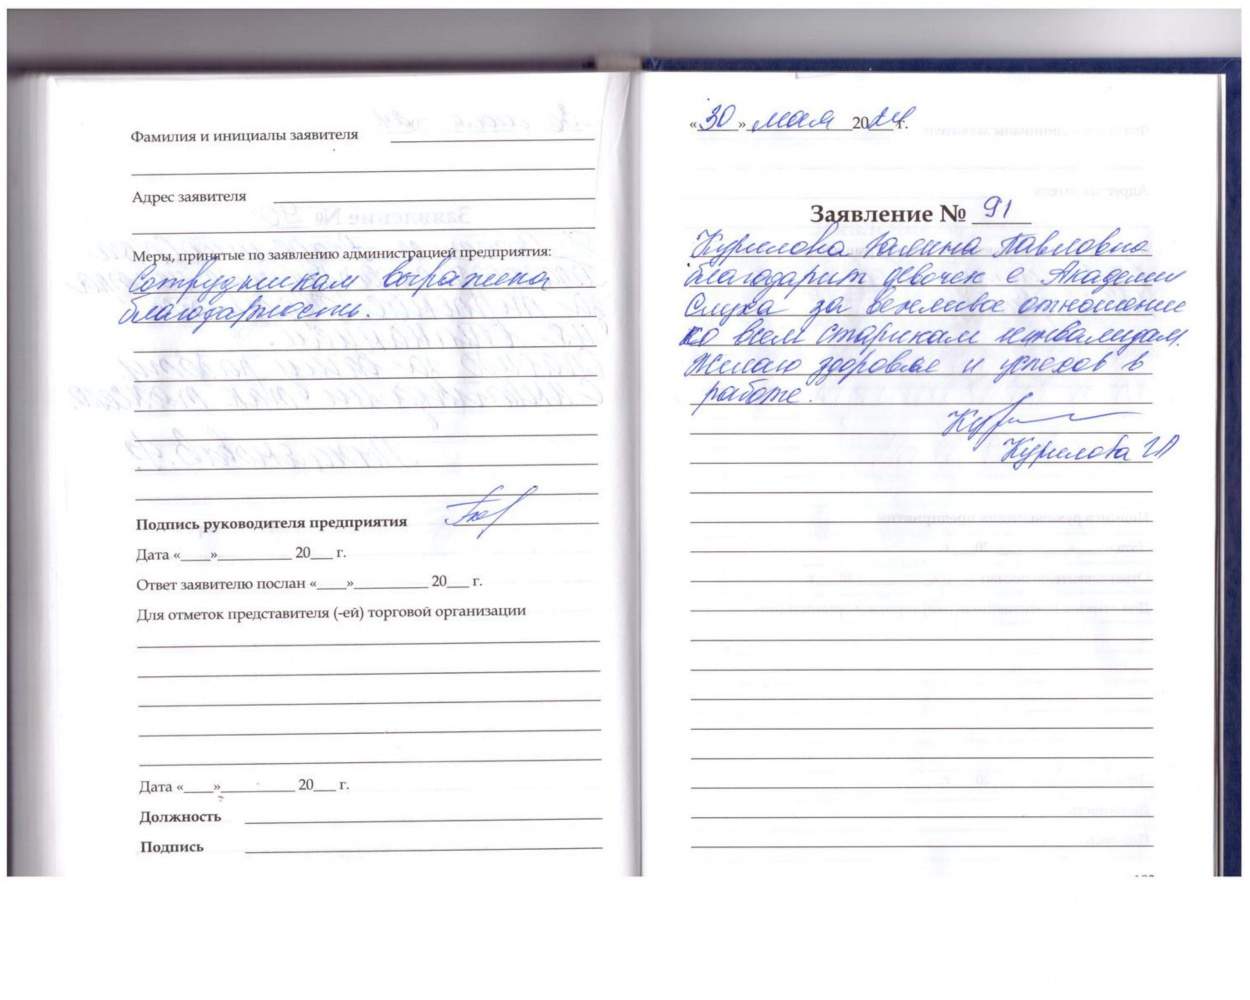 Фамилия и инициалы заявителя
Адрес заявителя
Меры, принятые по заявлению администрацией предприятия:
Сотрудникам выражена
благодарность.
Подпись руководителя предприятия
Дата «____»__________ 20___ г.
Ответ заявителю послан «____»__________ 20___ г.
Для отметок представителя (-ей) торговой организации
Дата «____»__________ 20___ г.
Должность
Подпись
«30» мая 2024 г.
Заявление № 91
Курилова Галина Павловна
благодарит девочек с Академии
Слуха за вежливое отношении
ко всем старикам инвалидам.
Желаю здоровье и успехов в
работе.
Курилова ГП